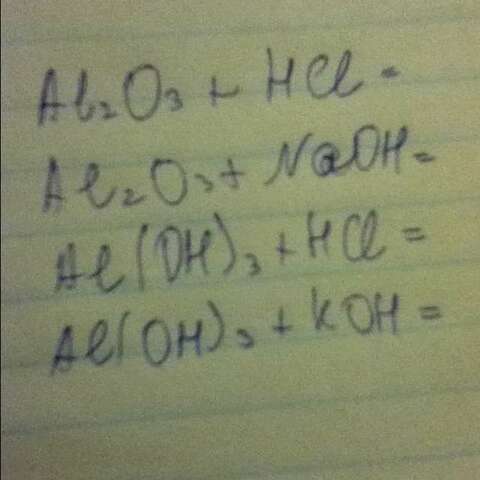 Al₂O₃ + HCl =
Al₂O₃ + NaOH =
Al(OH)₃ + HCl =
Al(OH)₃ + KOH =